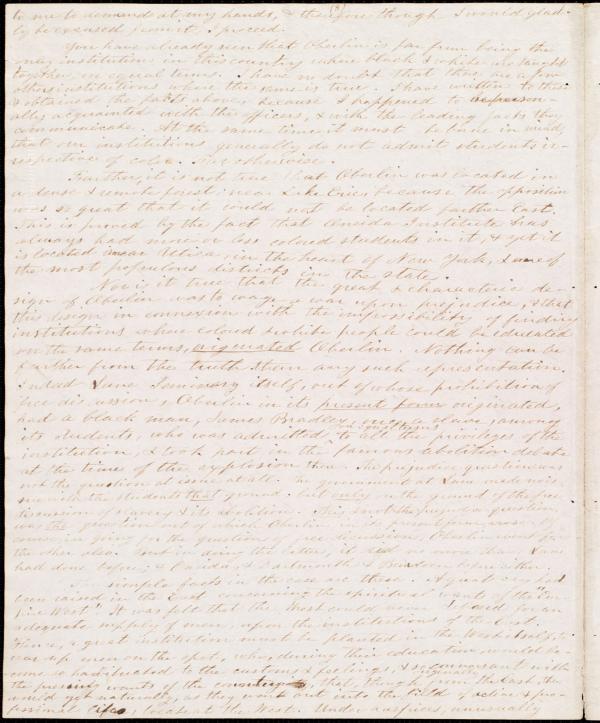 to me to demand at my hands, & therefore though I would glad-
ly be excused from it, I proceed.
You have already seen that Oberlin is far from being the
only institution in this country where black & white are taught
together on equal terms. I have no doubt that there are a few
other institutions where the same is true. I have written to these
& obtained the facts above, because I happened to be person-
ally acquainted with the officers, & with the leading facts they
communicate. At the same time it must be borne in mind,
that our institutions generally do not admit students ir-
respective of color. Far otherwise.
Farther, it is not true that Oberlin was located in
a dense & remote forest near Lake Erie, because the opposition
was so great that it could not be located farther East.
This is proved by the fact that Oneida Institute has
always had more or less colored students in it, & yet it
is located near Utica in the heart of New York, & one of
the most populous districts in the state.
Nor is it true that the great & characteristic de-
sign of Oberlin was to wage a war upon prejudice, & that
this design in connexion with the impossibility of finding
institutions where colored & white people could be educated
on the same terms, originated Oberlin. Nothing can be
farther from the truth than any such representation.
Indeed Lane Seminary itself, out of whose prohibition of
free discussion, Oberlin in its present form originated,
had a black man, James Bradley, once a slave, among
its students, who was admitted to all the privileges of the
institution, & took part in the famous abolition debate
at the time of the explosion there. The prejudice question was
not the question at issue at all. The government at Lane made no is-
sue with the students on that ground, but only on the ground of the free
discussion of slavery & its abolition. This, & not the prejudice question,
was the question out of which Oberlin in its present form arose. Of
course in going for the question of free discussion, Oberlin went for
the other also. But in doing the latter, it did no more than Lane
had done before, & Oneida, & Dartmouth & before either.
The simple facts in the case are these. A great cry had
been raised in the East concerning the spiritual wants of the "En-
tire West". It was felt that the West could never for an
adequate supply of men, upon the institutions of the East.
Hence, a great institution must be planted in the West itself, to
rear up men on the spot, who, during their education, would be-
come so habituated to the customs & feelings, & so conversant with
the pressing wants of the country, that, though originally from the East, they
would yet naturally, as they went out into the field of active & pro-
fessional life, locate at the West. Under auspices, unusually